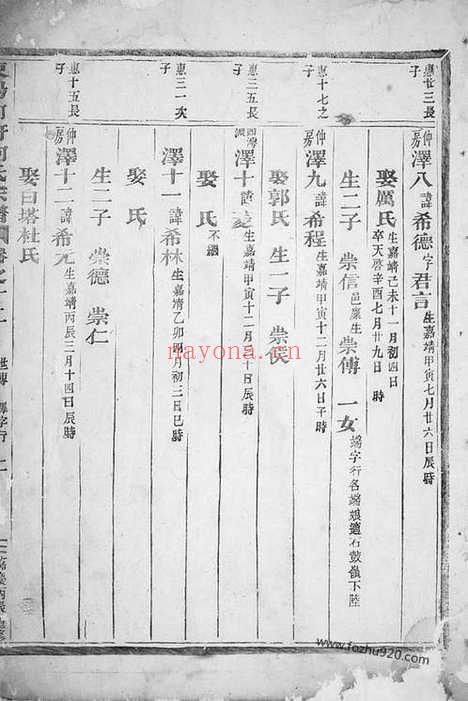 惠廿三長子
仲房 澤八 諱 希德 字 君言 生嘉靖甲寅七月廿六日辰時
娶厲氏 生嘉靖己未十一月初四日 卒天啓辛酉七月廿九日 時
生二子 崇信 邑廩生 崇傳 一女 端字行名端娘適石鼓嶺下陸
惠十七之子
仲房 澤九 諱 希程 生嘉靖甲寅十二月廿六日子時
娶郭氏 生一子 崇侯
惠三五長子
澤十 諱 生嘉靖甲寅十二月 十日辰時
娶 氏 不綱
惠三一次子
澤十一 諱 希林 生嘉靖乙卯 月初三日巳時
娶 氏
生二子 崇德 崇仁
惠十五長子
仲房 澤十二 諱 希元 生嘉靖丙辰三月十四日辰時
娶白塔杜氏
何氏宗譜
nayona.cn
www.fozhu920.com